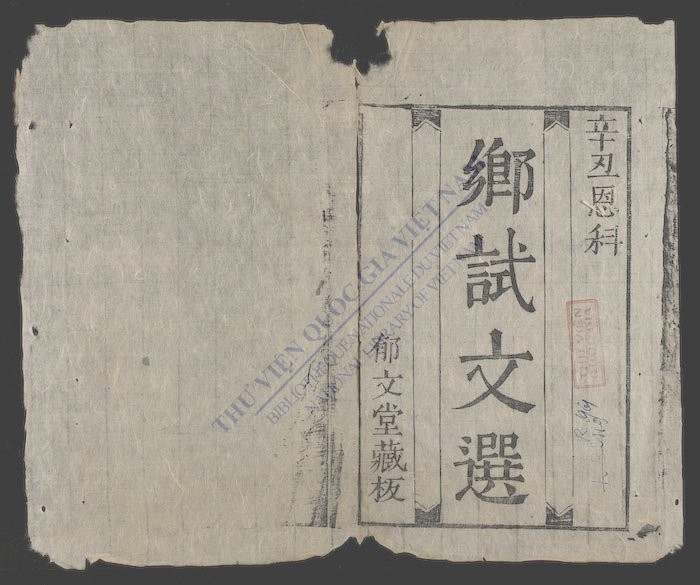 辛丑恩科
鄉試文選
郁文堂藏板
THƯ VIỆN QUỐC GIA VIỆT NAM
BIBLIOTHÈQUE NATIONALE DU VIETNAM
NATIONAL LIBRARY OF VIETNAM